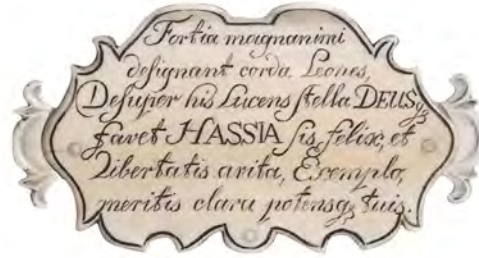 Fortia magnanimi
deſignant corda Leones,
Deſuper his Lucens ſtella DEUSqꝫ
favet HASSIA ſis felix, et
Libertatis avita, Exemplo,
meritis clara potensqꝫ tuis.